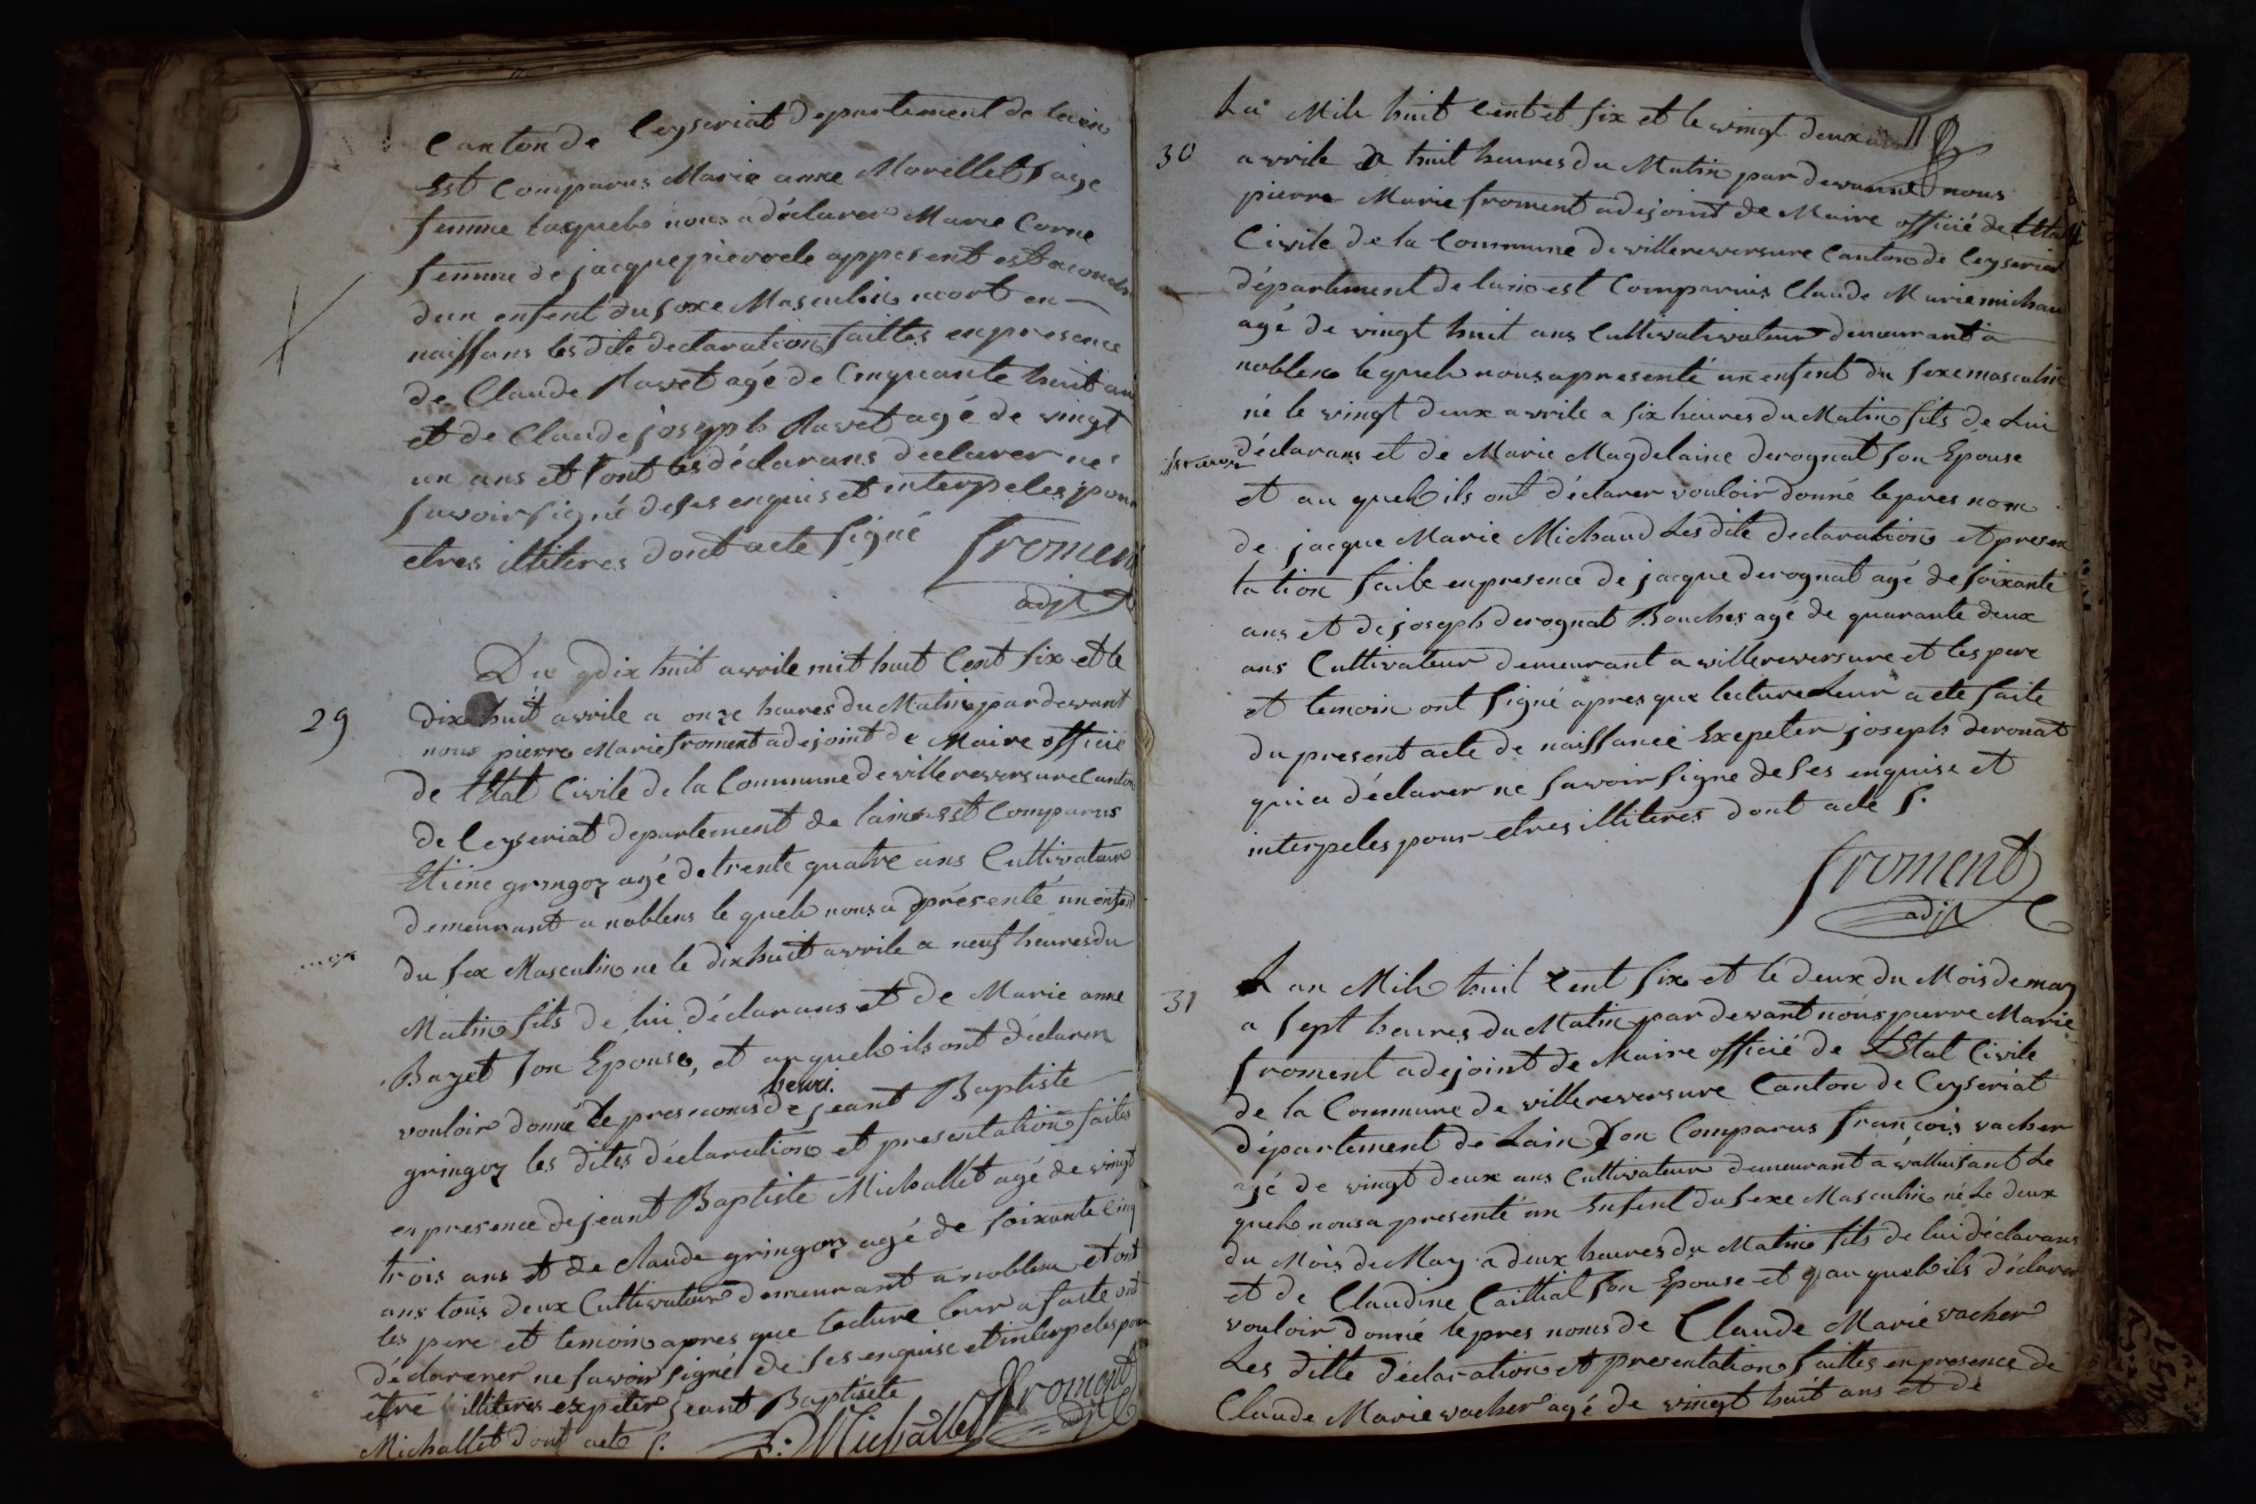 Canton de Ceyseriat departement de lain
Est Comparus Marie anne Morellet sage
femme laquele nous a déclarer Marie Corne
femme de jacque pievoele appes ent est acouché
dun enfent du sexe Masculin mort en
naissans les dite declaration faittes en presence
de Claude Ravet agé de Cinquante huit ans
et de Claude joseph Ravet agé de vingt
un ans et sont les déclarans declarer ne
savoir signé de ses enquis et interpeles pour
etres illiteres dont acte signé
froment
adjt
Du dix huit avrile mil huit Cent six et le
29
dix huit avrile a onze heures du Matin pardevant
nous pierre Marie froment adejoint de Maire officié
de lEtat Civile de la Commune de villereversure Canton
de Ceyseriat departement de lain est Comparus
Etiene gringoz agé de trente quatre ans Cultivateur
demeurant a noblens le quele nous a présenté un enfent
du sex Masculin ne le dix huit avrile a neuf heures du
Matin fils de lui déclarans et de Marie anne
Bazet son Epouse, et auquele ils ont déclarer
henri.
vouloir donné le pres noms de jeant Baptiste
gringoz les dites déclaration et presentation faites
en presence de jeant Baptiste Michallet agé de vingt
trois ans et de Claude gringoz agé de soixante cinq
ans tous deux Cultivateur demeurant a noblens et ont
les pere et temoin apres que lecture leur a faite ont
déclarerer ne savoir signé de ses enquise et interpeles pour
être illiteres expeter jeant Baptisete
Michallet dont acte s.
J: Michallet froment
adjt
Lan Mile huit Cent et six et le vingt deux
30
avrile a huit heures du Matin par devanne nous
pierre Marie froment adejoint de Maire officié de lEtat
Civile de la Commune de villereversure Canton de Ceyseriat
département de lain est Comparuis Claude Marie michau
agé de vingt huit ans Cultivativateur demeurant a
noblens le quele nous a presenté un enfent du sexe masculin
né le vingt deux avrile a six heures du Matin fils de Lui
déclarans et de Marie Magdelaine derognat son Epouse
et au quele ils ont déclarer vouloir donné le pres nom
de jacque Marie Michaud Les dite declaration et presen
tation faite en presence de jacque derognat agé de soixante
ans et de joseph derognat Bouches agé de quarante deux
ans Cultivateur demeurant a villereversure et les pere
et temoin ont signé apres que lecture Leur a ete faite
du present acte de naissance Exepeter joseph deronat
qui a déclarer ne savoir signe de ses enquise et
interpeles pour etres illiteres dont acte s.
froment
adjt
31
Lan Mile huit Cent six et le deux du Mois de may
a sept heures du Matin par devant nous pierre Marie
froment adejoint de Maire officié de LEtat Civile
de la Commune de villereversure Canton de Ceyseriat
département de Lain son Comparus françois vacher
agé de vingt deux ans Cultivateur demeurant a walluisant Le
quele nous a presenté un Enfent du sexe Masculin né Le deux
du Mois de May a deux heures du Matin fils de lui déclarans
et de Claudine Caillial son Epouse et auquele ils déclarer
vouloir donné le pres noms de Claude Marie vacher
Les ditte déclaration et presentation faittes en presence de
Claude Marie vacher agé de vingt huit ans et de